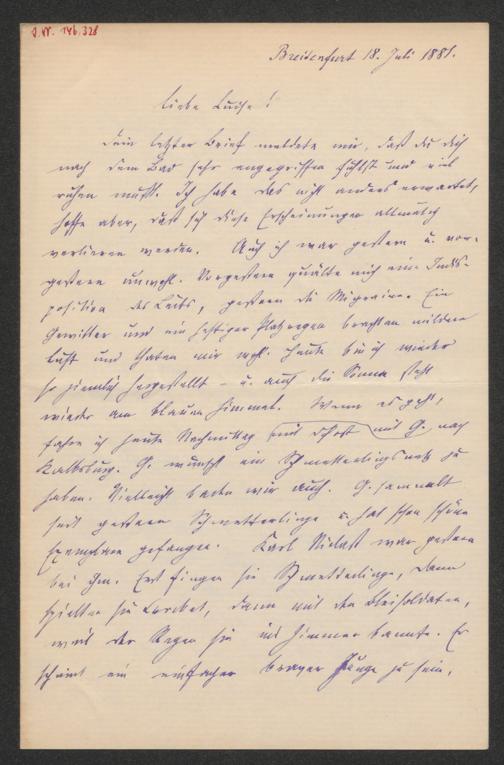 J.N. 146.328
Breitenfurt 18. Juli 1881.
Liebe Luise!
Dein letzter Brief meldete mir, daß du dich
nach dem Bad sehr angegriffen fühlst und viel
ruhen mußt. Ich habe das nicht anders erwartet,
hoffe aber, daß sich diese Erscheinungen allmälich
verlieren werden. Auch ich war gestern u. vor-
gestern unwohl. Vorgestern quälte mich eine Indis-
position des Leibs, gestern die Migraine. Ein
Gewitter und ein heftiger Platzregen brachten mildere
Luft und thaten mir wohl. Heute bin ich wieder
so ziemlich hergestellt – u. auch die Sonne steht
wieder am blauen Himmel. Wenn es geht,
fahre ich heute Nachmittag mit G. nach
Kaltsburg. G. wünscht ein Schmetterlingsnetz zu
haben. Vielleicht baden wir auch. G. sammelt
seit gestern Schmetterlinge u. hat schon schöne
Exemplare gefangen. Karl war gestern
bei ihm. Erst fingen sie Schmetterlinge, dann
spielten sie, dann mit den Bleisoldaten,
weil der Regen sie ins Zimmer bannte. Er
scheint ein einfacher braver Junge zu sein,